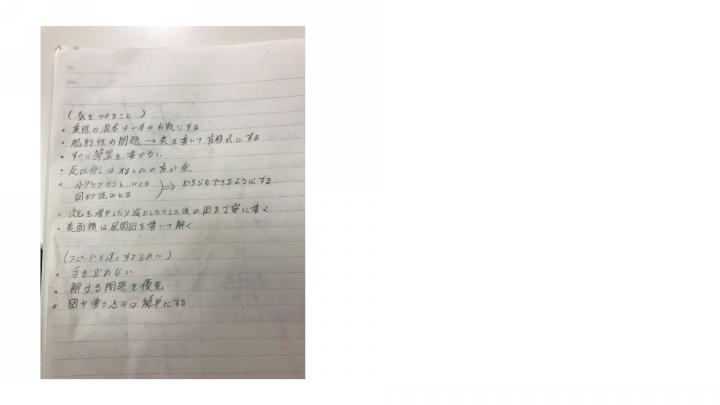 (気をつけること)
・乗除の混合は一本の分数にする
・規則性の問題 → 表を書いて方程式にする
・すぐに筆算を書かない
・反比例は の方が楽
・
図的に読みとる
どちらもできるようにする
・次元を増やしたり減らしたりした後の図を丁寧に書く
・表面積は展開図を書いて解く
(スピードを速くするために)
・手を止めない
・解ける問題を優先
・図や書き込みは簡単にする